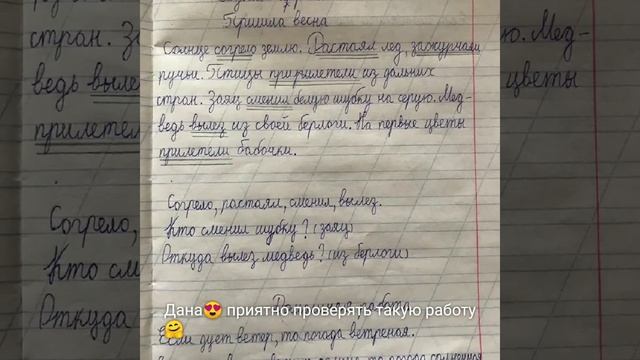 Пришла весна
Солнце согрело землю. Растаял лед, зажурчали
ручьи. Птицы приприлетели из дальних
стран. Заяц сменил белую шубку на серую. Мед-
ведь вылез из своей берлоги. На первые цветы
прилетели бабочки.
Согрело, растаял, сменил, вылез.
Кто сменил шубку? (заяц)
Откуда вылез медведь? (из берлоги)
Дана😍 приятно проверять такую работу
🤗
Если дует ветер, то погода ветреная.